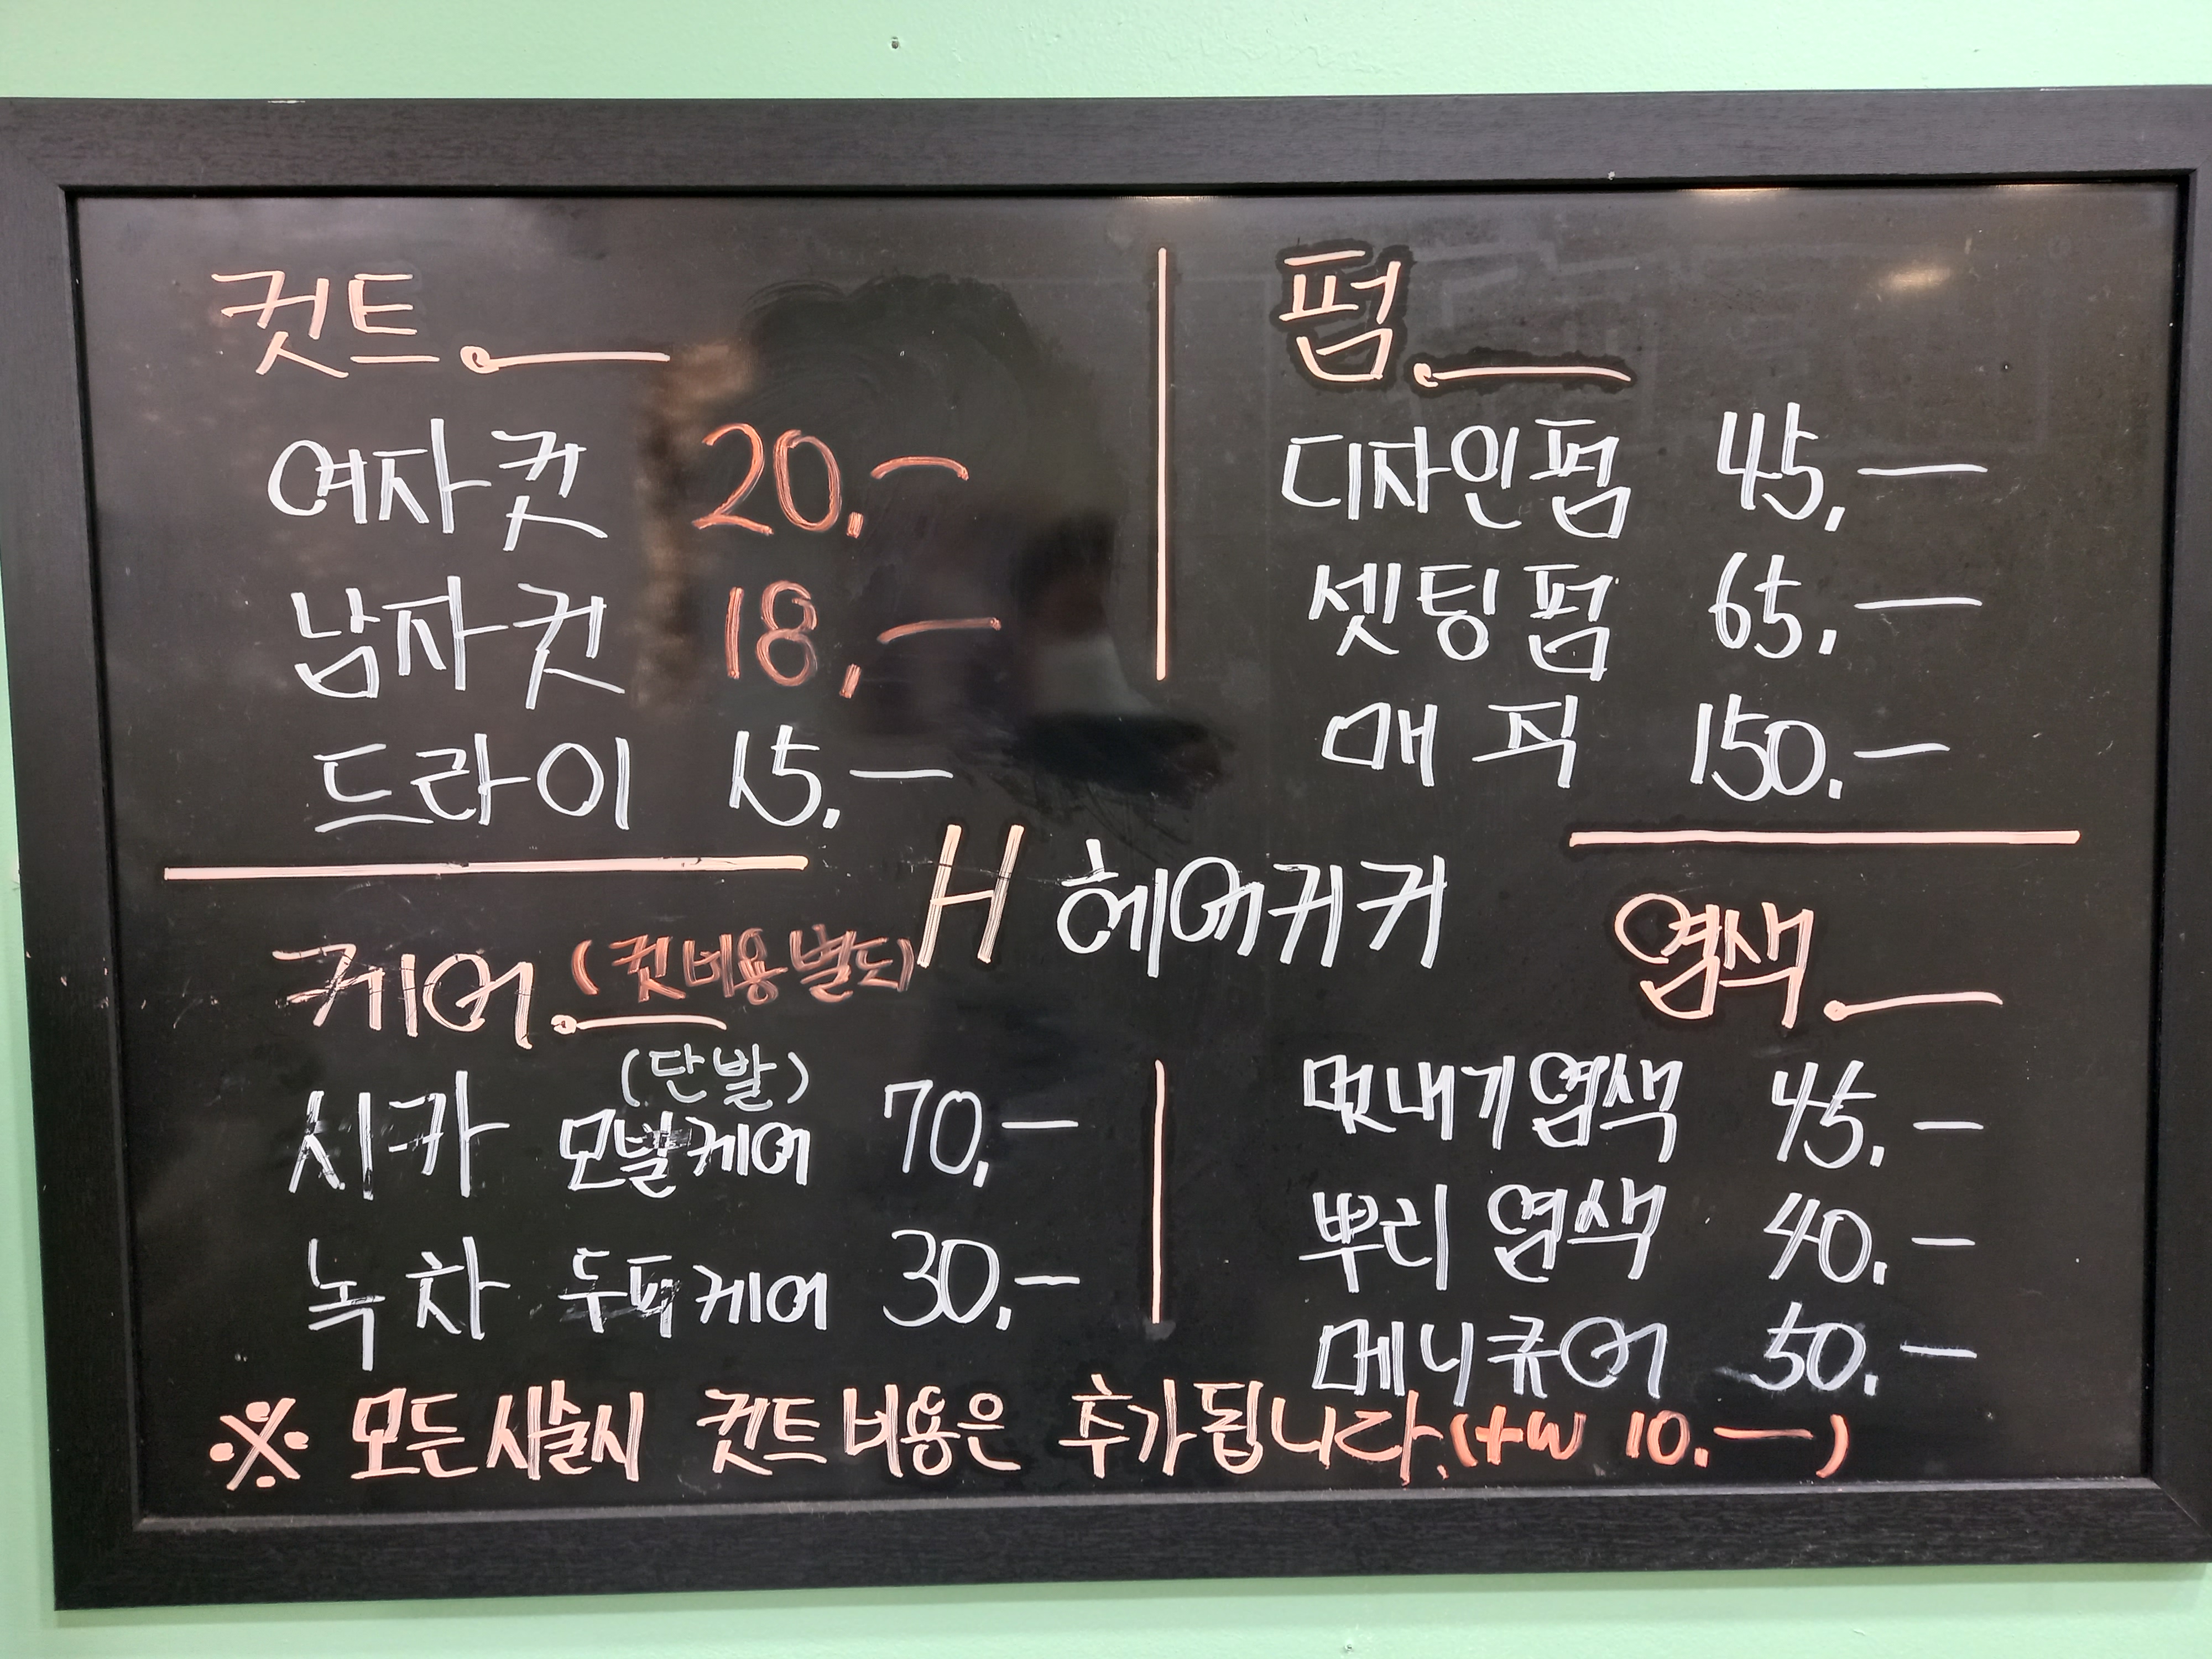 컷트
여자컷 20.-
남자컷 18,-
드라이 15.-
펌
디자인펌 45,-
셋팅펌 65,-
매직 150.-
H 헤어키커
케어 (컷비용별도)
(단발)
시카 모발케어 70,-
녹차 두피케어 30.-
염색
멋내기염색 45.-
뿌리 염색 40.-
메니큐어 50.-
※ 모든시술시 컷트비용은 추가됩니다.(+₩ 10.-)